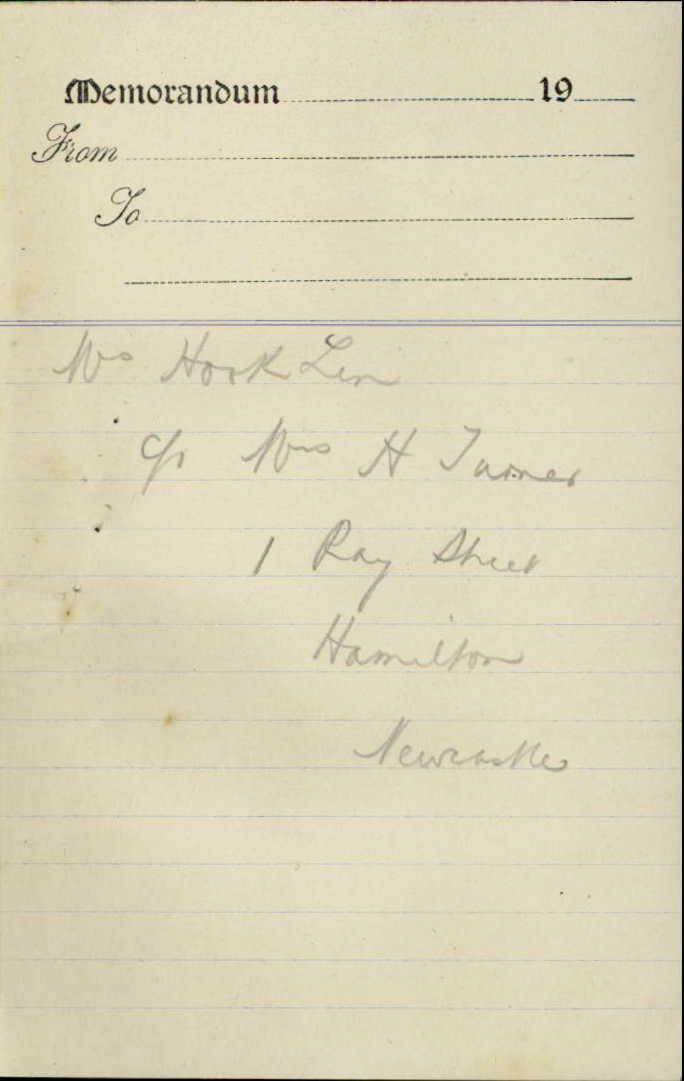 Memorandum 19
From
To
Mrs Hook Lin
c/o Mrs H Turner
1 Ray Street
Hamilton
Newcastle